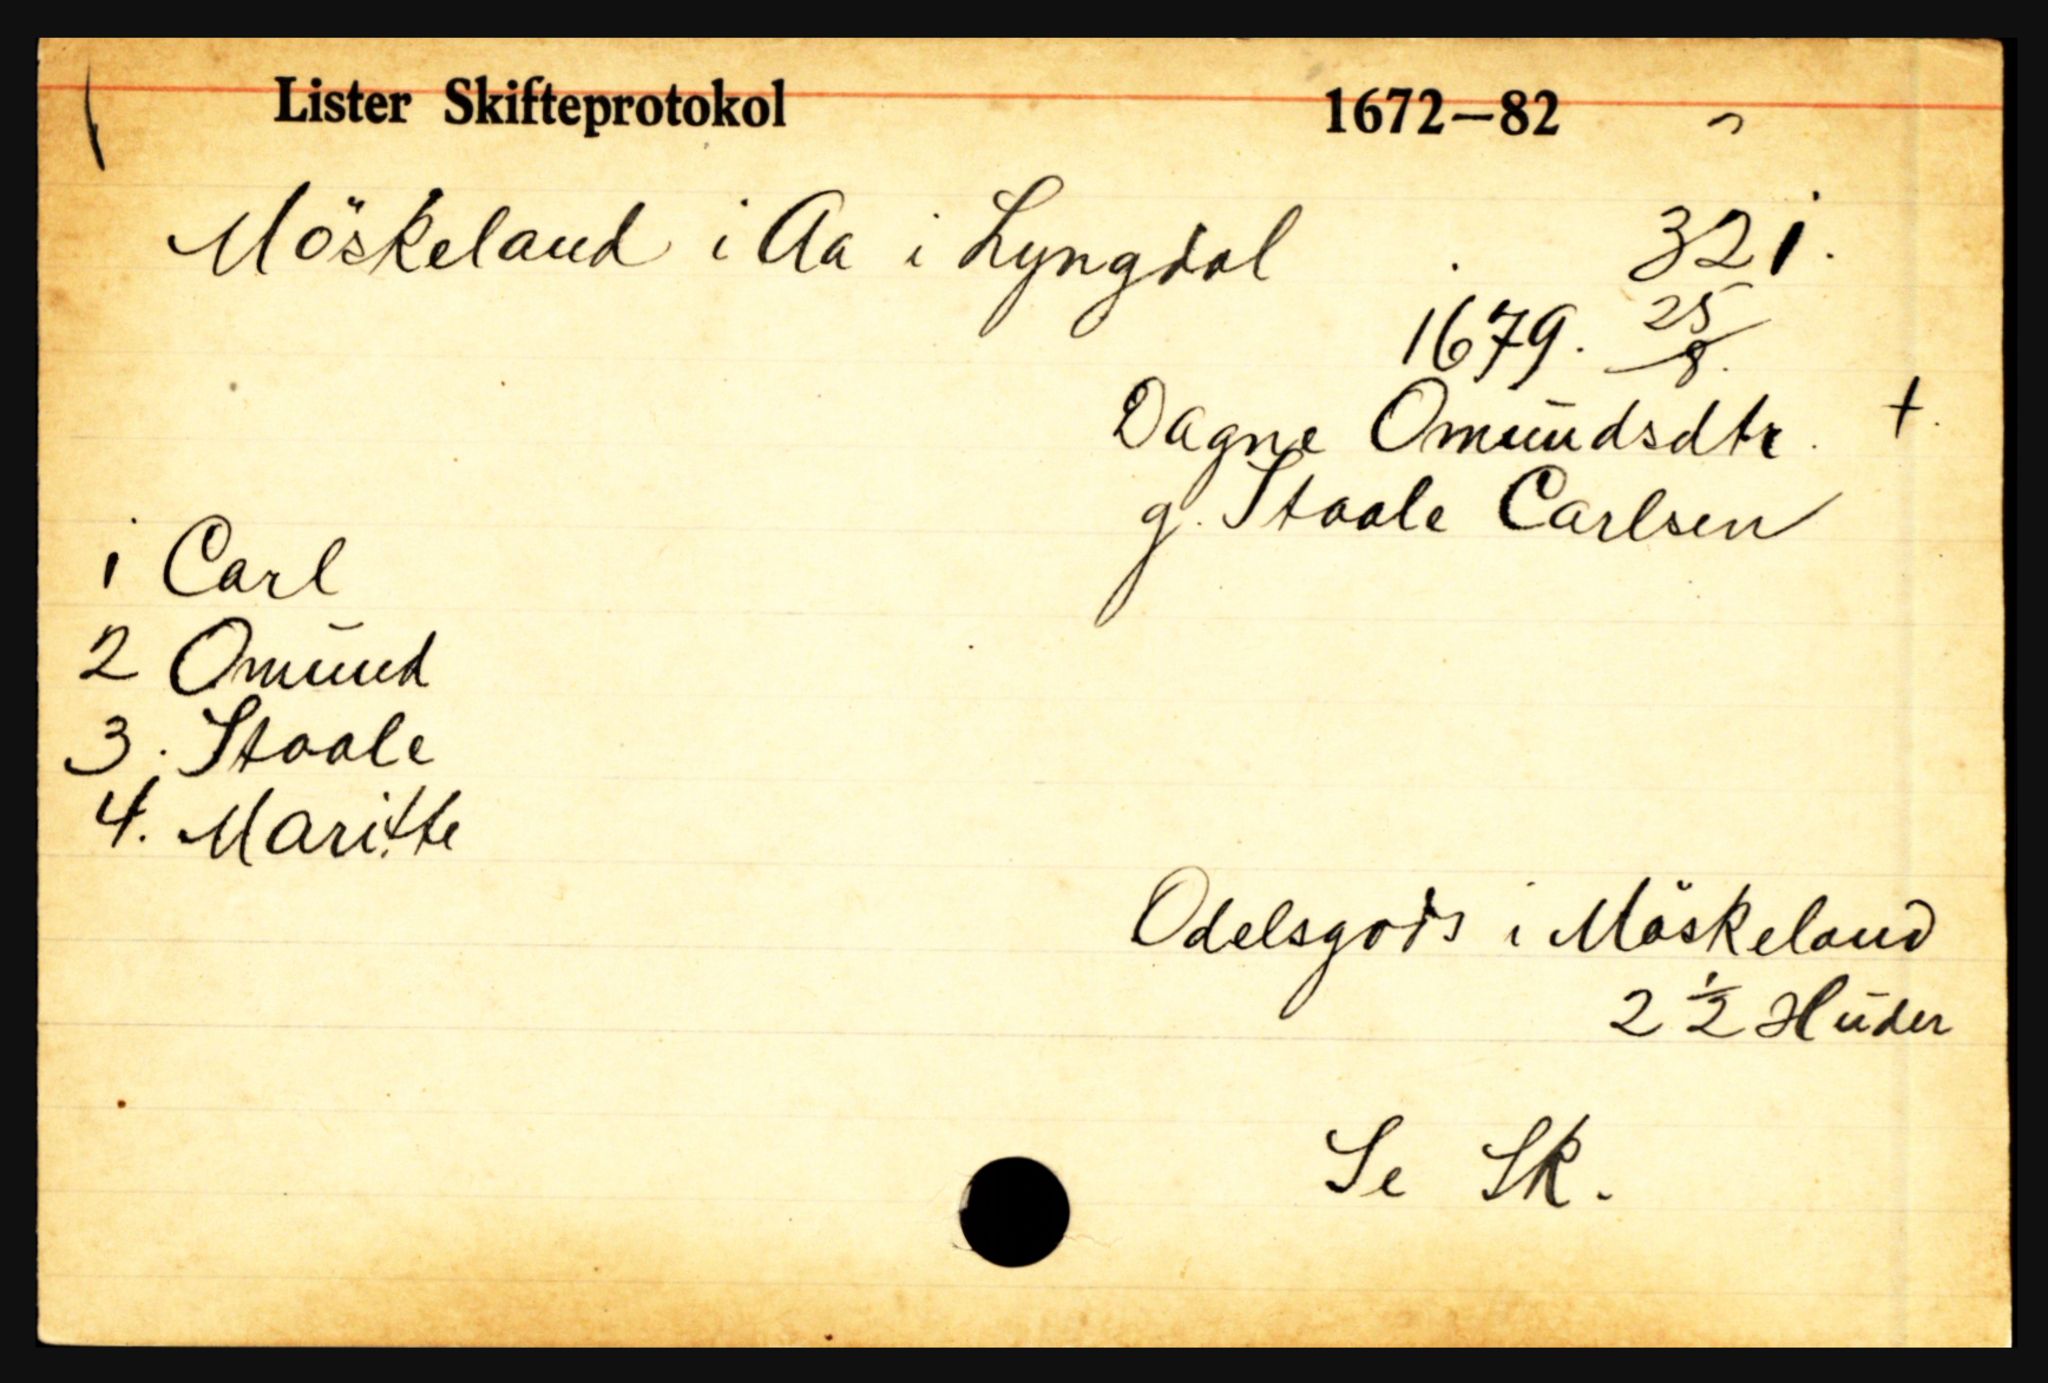 Lister Skifteprotokol 1672—82
Möskeland i Aa i Lyngdal 321.
1679. 25/8.
Dagne Omundsdtr. +.
g. Staale Carlsen
1 Carl
2 Omund
3. Staale
4. Maritte
Odelsgods i Möskeland
2 1/2 Huder
Se Sk.